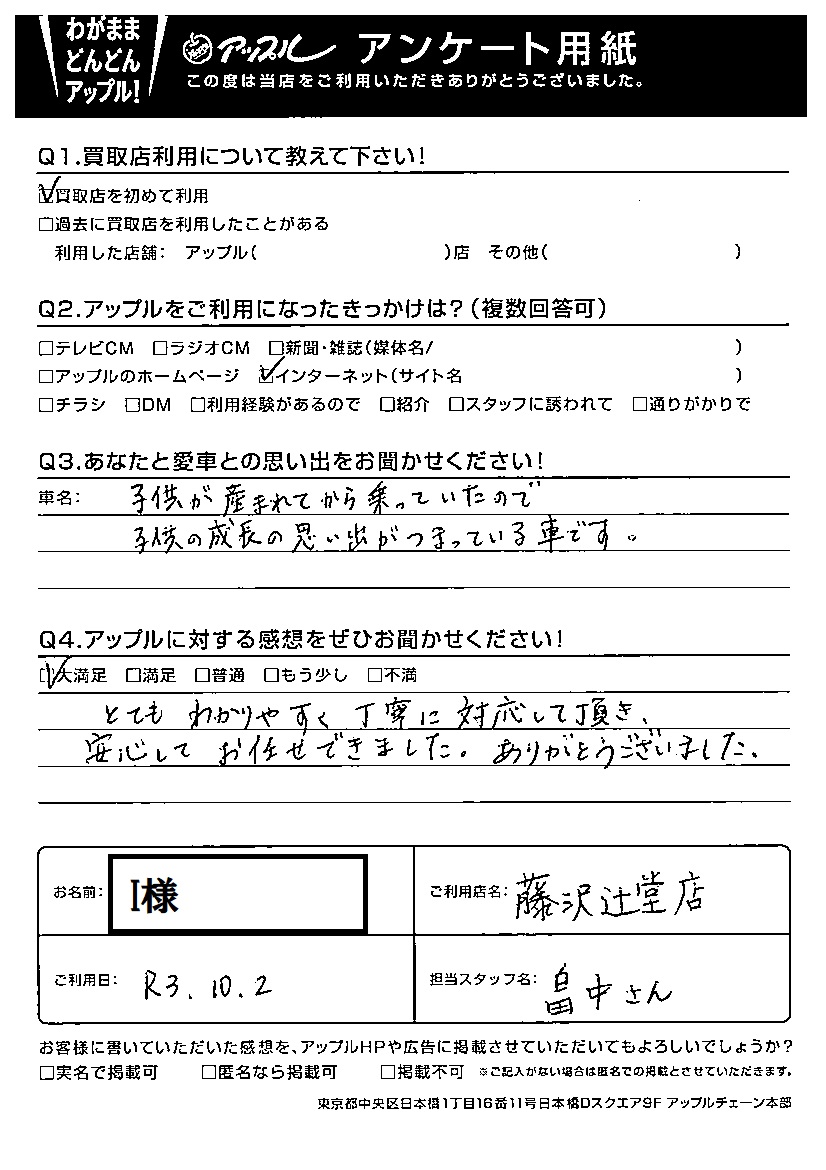 わがまま
どんどん
アップル!
アップル アンケート用紙
この度は当店をご利用いただきありがとうございました。
Q1.買取店利用について教えて下さい!
☑買取店を初めて利用
□過去に買取店を利用したことがある
利用した店舗: アップル( )店 その他( )
Q2.アップルをご利用になったきっかけは?(複数回答可)
□テレビCM □ラジオCM □新聞・雑誌(媒体名/ )
□アップルのホームページ ☑インターネット(サイト名 )
□チラシ □DM □利用経験があるので □紹介 □スタッフに誘われて □通りがかりで
Q3.あなたと愛車との思い出をお聞かせください!
車名: 子供が産まれてから乗っていたので
子供の成長の思い出がつまっている車です。
Q4.アップルに対する感想をぜひお聞かせください!
☑大満足 □満足 □普通 □もう少し □不満
とても わかりやすく 丁寧に 対応して頂き、
安心して お任せできました。ありがとうございました。
お名前: I様
ご利用店名: 藤沢辻堂店
ご利用日: R3.10.2
担当スタッフ名: 畠中さん
お客様に書いていただいた感想を、アップルHPや広告に掲載させていただいてもよろしいでしょうか?
□実名で掲載可 □匿名なら掲載可 □掲載不可 ※ご記入がない場合は匿名での掲載とさせていただきます。
東京都中央区日本橋1丁目16番11号日本橋Dスクエア9F アップルチェーン本部